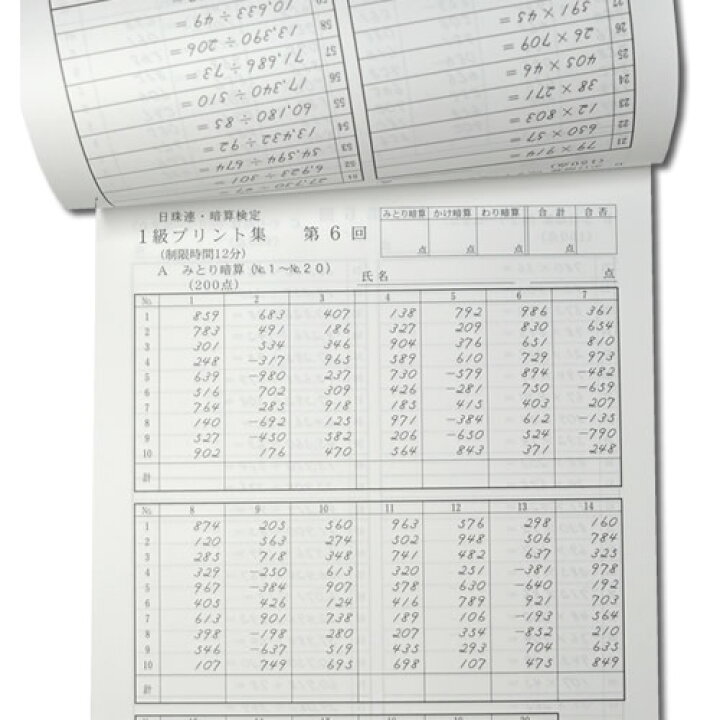 10,633 ÷ 49 =
58 13,390 ÷ 206 =
57 71,686 ÷ 73 =
56 17,340 ÷ 510 =
55 60,180 ÷ 85 =
54 13,432 ÷ 92 =
53 54,594 ÷ 674 =
52 6,923 ÷ 301 =
51
591 × 45
26 26 × 709 =
25 405 × 46 =
24 38 × 271 =
23 12 × 803 =
22 650 × 57 =
21 79 × 914 =
日珠連・暗算検定
1級プリント集 第6回
(制限時間12分)
みとり暗算 かけ暗算 わり暗算 合計 合否
点 点 点 点
A みとり暗算 (№1～№20)
(200点)
氏名 点
№ 1 2 3 4 5 6 7
1 859 683 407 138 792 986 361
2 783 491 186 327 209 830 654
3 301 534 346 904 376 651 810
4 248 -317 965 589 610 729 973
5 639 -980 237 730 -579 894 -482
6 516 702 309 426 -281 750 -659
7 764 285 918 185 415 403 207
8 140 -692 125 971 -384 612 -135
9 527 -450 582 206 -650 524 -790
10 902 176 470 564 843 371 248
計
№ 8 9 10 11 12 13 14
1 874 205 560 963 576 298 160
2 120 563 274 502 948 506 784
3 285 718 348 741 482 637 325
4 329 -250 613 320 251 -381 978
5 967 -384 907 578 630 -640 192
6 405 426 124 416 789 921 703
7 613 901 738 189 106 -193 564
8 398 -198 280 207 354 -852 210
9 546 -637 519 435 293 704 635
10 107 749 695 698 107 475 849
計